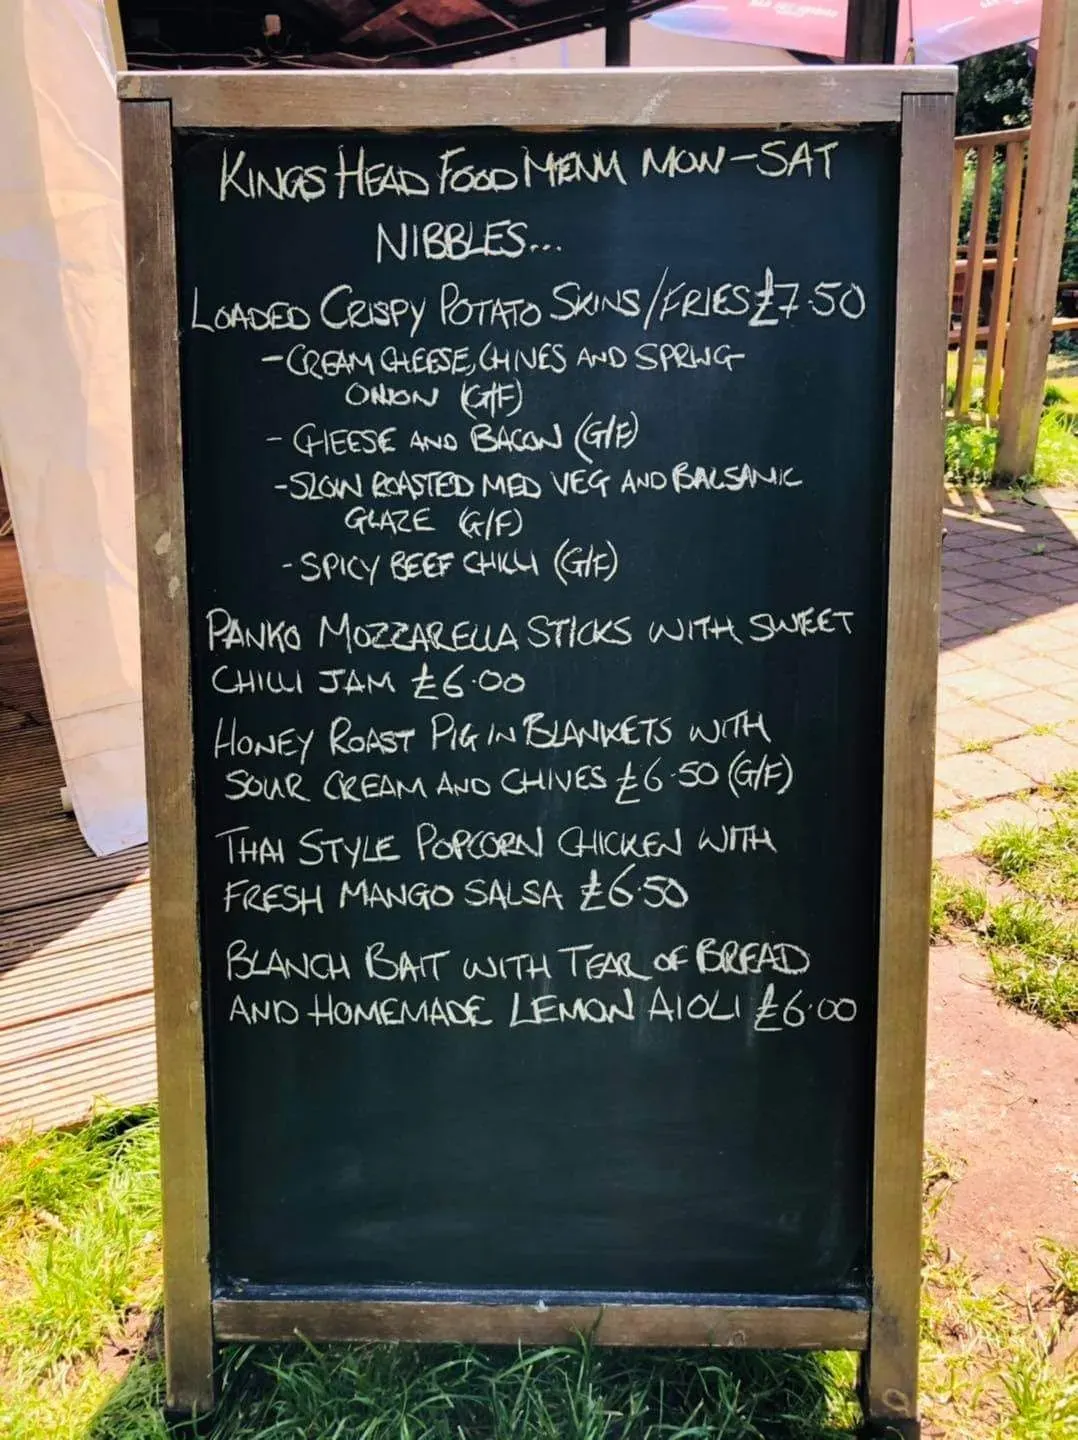 KINGS HEAD FOOD MENU MON-SAT
NIBBLES...
LOADED CRISPY POTATO SKINS/FRIES £7.50
- CREAM CHEESE, CHIVES AND SPRING
ONION (G/F)
- CHEESE AND BACON (G/F)
- SLOW ROASTED MED VEG AND BALSAMIC
GLAZE (G/F)
- SPICY BEEF CHILLI (G/F)
PANKO MOZZARELLA STICKS WITH SWEET
CHILLI JAM £6.00
HONEY ROAST PIG IN BLANKETS WITH
SOUR CREAM AND CHIVES £6.50 (G/F)
THAI STYLE POPCORN CHICKEN WITH
FRESH MANGO SALSA £6.50
BLANCH BAIT WITH TEAR OF BREAD
AND HOMEMADE LEMON AIOLI £6.00